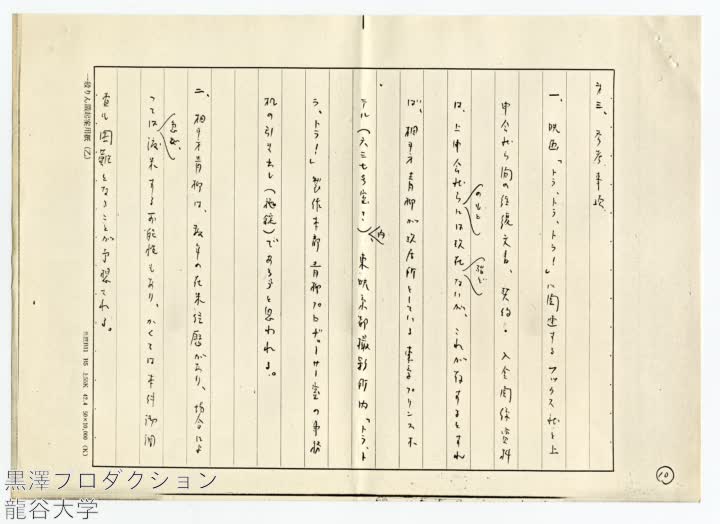 第三、参考事項
一、映画「トラ、トラ、トラ!」に関連するフォックス社と上
申会社ら間の往復文書、契約、入金関係資料
は、上申会社らには現在ないが、これが存するとすれ
のもと
殆ど
ば、相手方青柳が現住所としている東京プリンスホ
テル(六三七号室)、東映京都撮影所内「トラ、ト
内
ラ、トラ!」製作本部青柳プロデューサー室の事務
机の引き出し(施錠)であろうと思われる。
二、相手方青柳は、数年の在米経歴があり、場合によ
っては渡米する可能性もあり、かくては本件御調
査が困難となることが予想される。
一般りん議起案用紙(乙)
10
黒澤プロダクション
龍谷大学